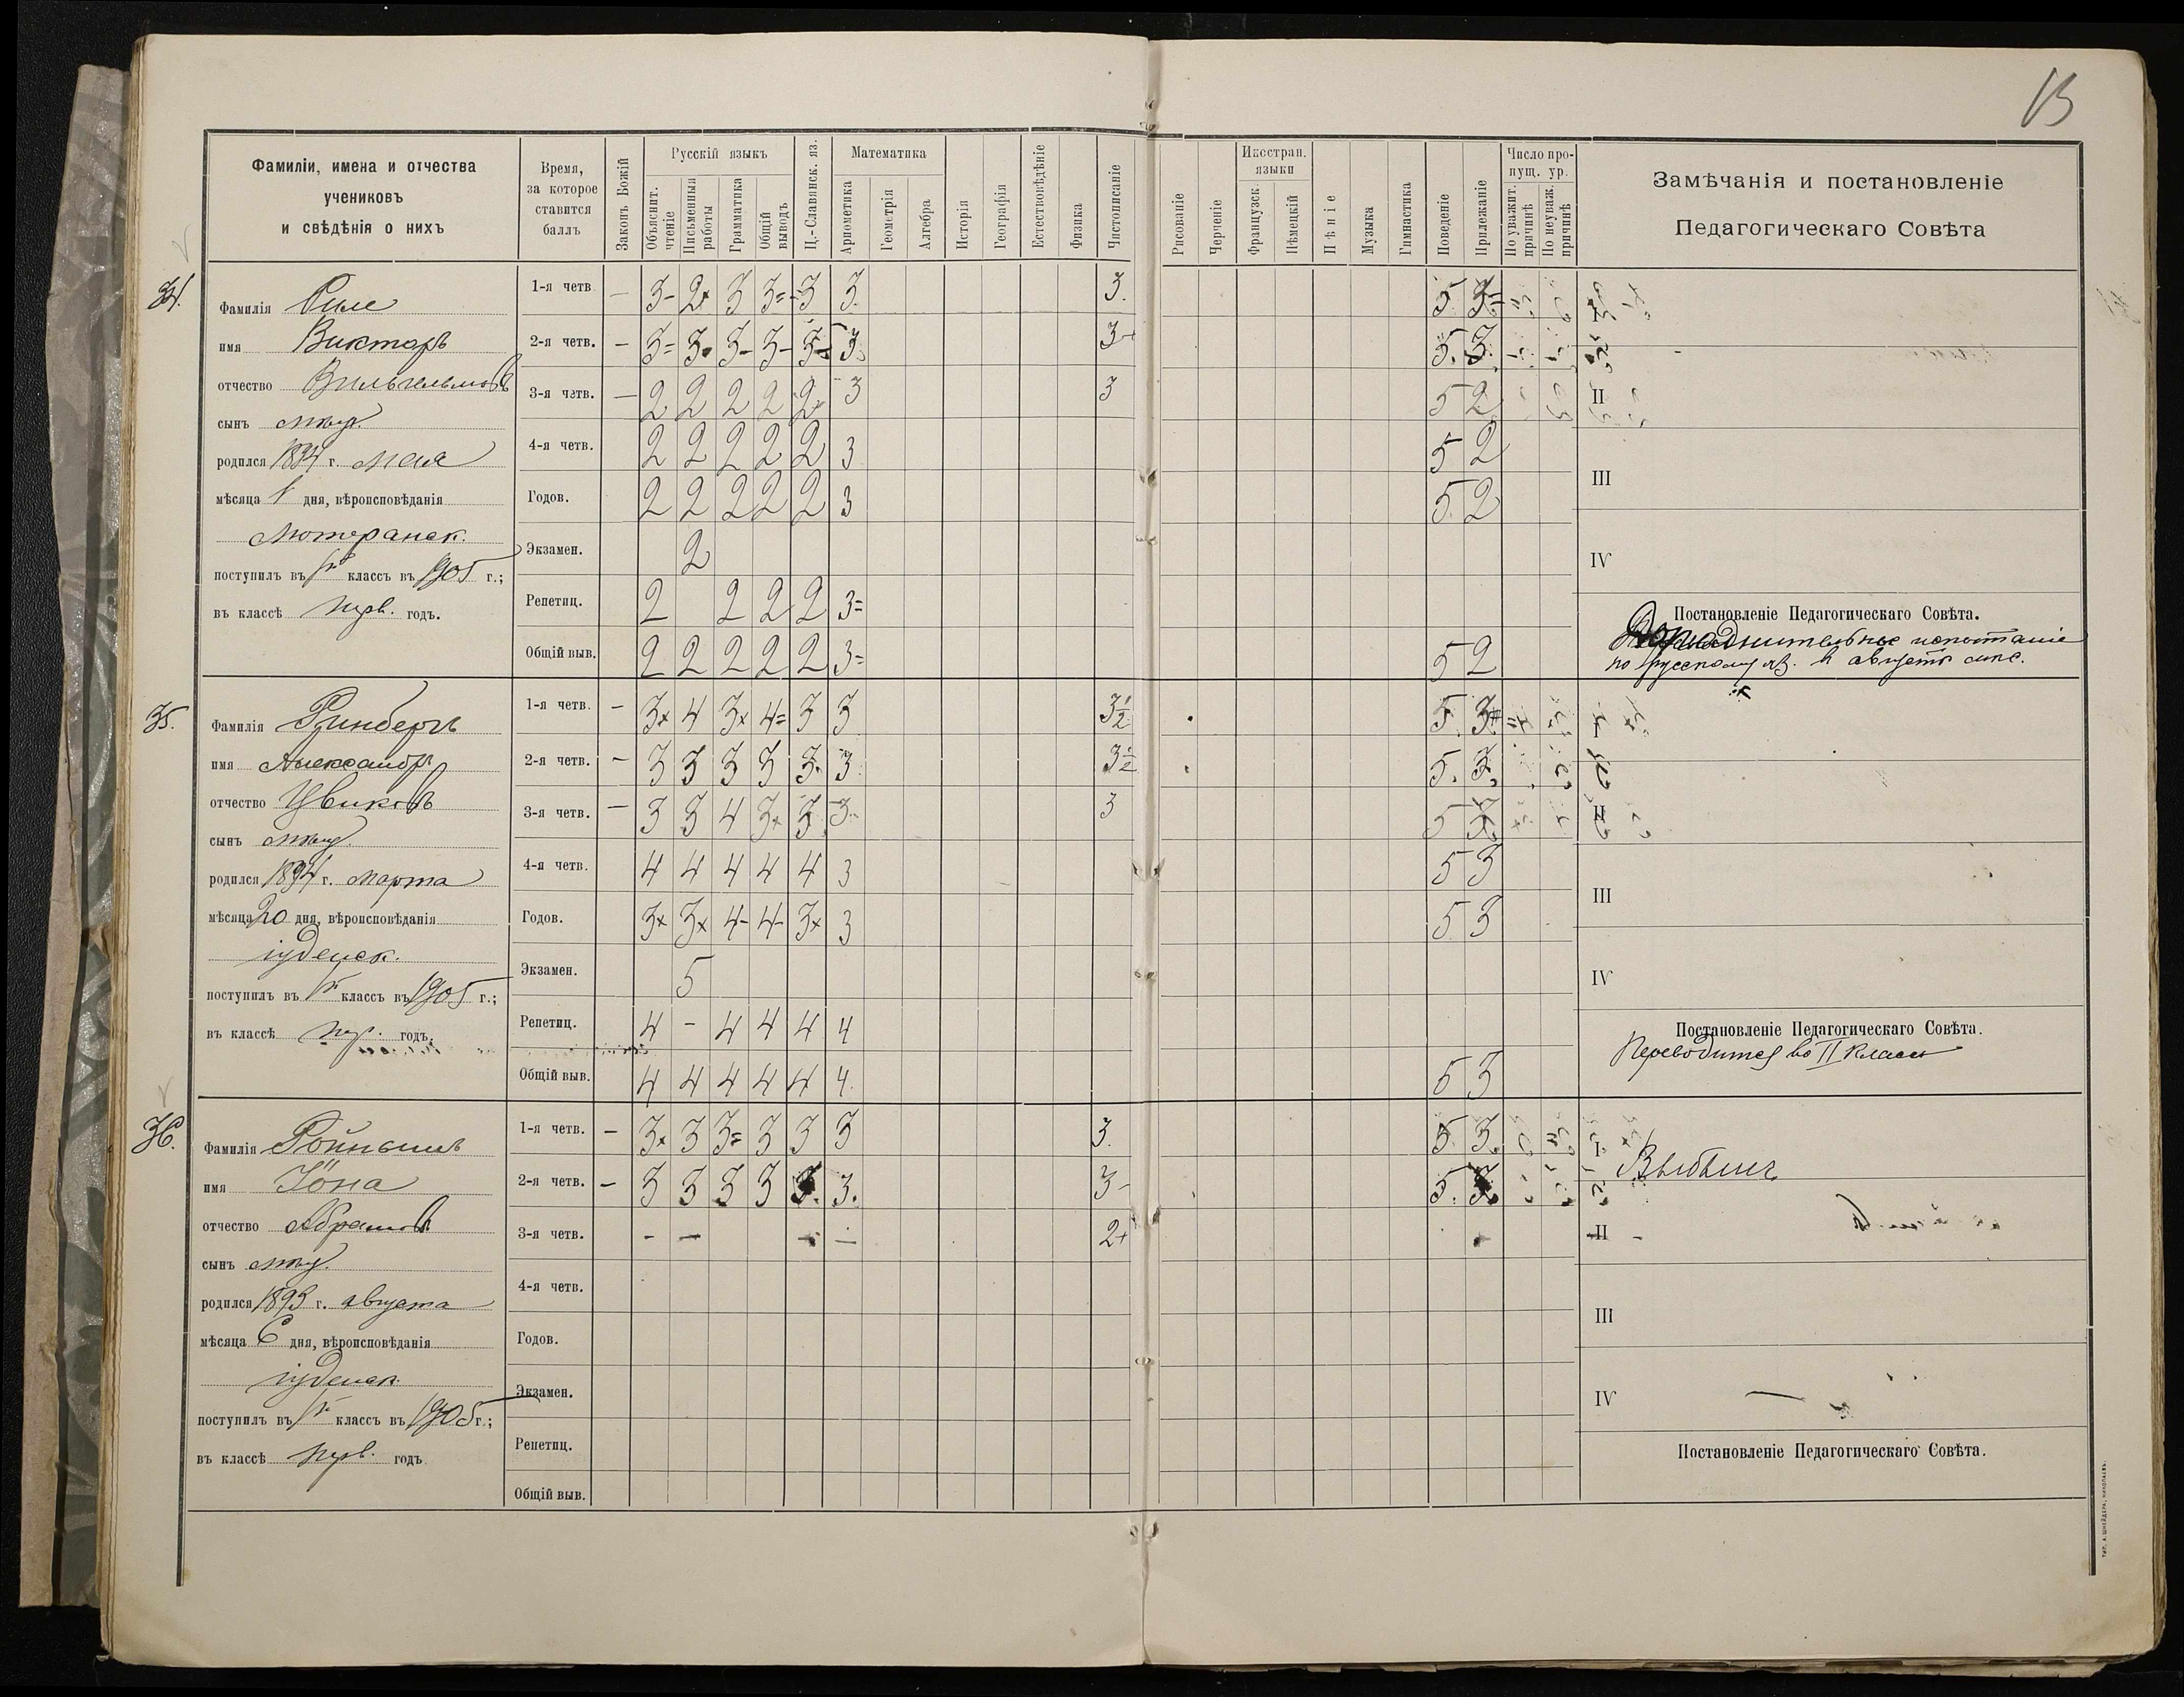 13
Фамиліи, имена и отчества
учениковъ
и свѣдѣнія о нихъ
Время,
за которое
ставится
баллъ
Законъ Божій
Русскій языкъ
Объяснит. чтеніе
Письменныя работы
Грамматика
Общій выводъ
Ц.-Славянск. яз.
Математика
Ариѳметика
Геометрія
Алгебра
Исторія
Географія
Естествовѣдѣніе
Физика
Чистописаніе
Рисованіе
Черченіе
Иностран. языки
Французск.
Нѣмецкій
Пѣніе
Музыка
Гимнастика
Поведеніе
Прилежаніе
Число пропущ. ур.
По уважит. причинѣ
По неуваж. причинѣ
Замѣчанія и постановленіе
Педагогическаго Совѣта
34.
Фамилія
имя Викторъ
отчество Вильгельмовъ
сынъ
родился 1894 г. мая
мѣсяца дня, вѣроисповѣданія
Лютеранск.
поступилъ въ классъ въ 1905 г.;
въ классѣ перв. годъ.
1-я четв. — 3- 2+ 3 3= 3 3. 3. 5. 3=
2-я четв. — 3= 3. 3- 3- 3- 3. 3+ 5. 3.
3-я четв. — 2 2 2 2 2 3 3 5 2
4-я четв. 2 2 2 2 2 3 5 2
Годов. 2 2 2 2 2 3 5. 2
Экзамен. 2
Репетиц. 2 2 2 2 3=
Общій выв. 2 2 2 2 2 3= 5 2
I
II
III
IV
Постановленіе Педагогическаго Совѣта.
испытаніе
по русскому яз. въ августѣ
35.
Фамилія Ринбергъ
имя Александръ
отчество
сынъ
родился 1894 г. марта
мѣсяца 20 дня, вѣроисповѣданія
іудейск.
поступилъ въ классъ въ 1905 г.;
въ классѣ пер. годъ.
1-я четв. — 3+ 4 3+ 4= 3 3 3½ 5.
2-я четв. — 3 3 3 3 3. 3. 3½ 5. 3.
3-я четв. — 3 3 4 3+ 3 3- 3 5 3
4-я четв. 4 4 4 4 4 3 5 3
Годов. 3+ 3+ 4- 4- 3+ 3 5 3
Экзамен. 5
Репетиц. 4 - 4 4 4 4
Общій выв. 4 4 4 4 4 4. 5 3
I
II
III
IV
Постановленіе Педагогическаго Совѣта.
Переводится во II классъ
36.
Фамилія
имя Іона
отчество Абрамовъ
сынъ
родился 1893 г. августа
мѣсяца 6 дня, вѣроисповѣданія
іудейск.
поступилъ въ классъ въ 1905 г.;
въ классѣ перв. годъ
1-я четв. — 3+ 3 3= 3 3 3 3. 5. 3.
2-я четв. — 3 3 3 3 3. 3. 3- 5. 3.
3-я четв. - — - — 2+
4-я четв.
Годов.
Экзамен.
Репетиц.
Общій выв.
I
Выбылъ
II
III
IV
Постановленіе Педагогическаго Совѣта.
ТИП. А. ШНЕЙДЕРА, НИКОЛАЕВЪ.